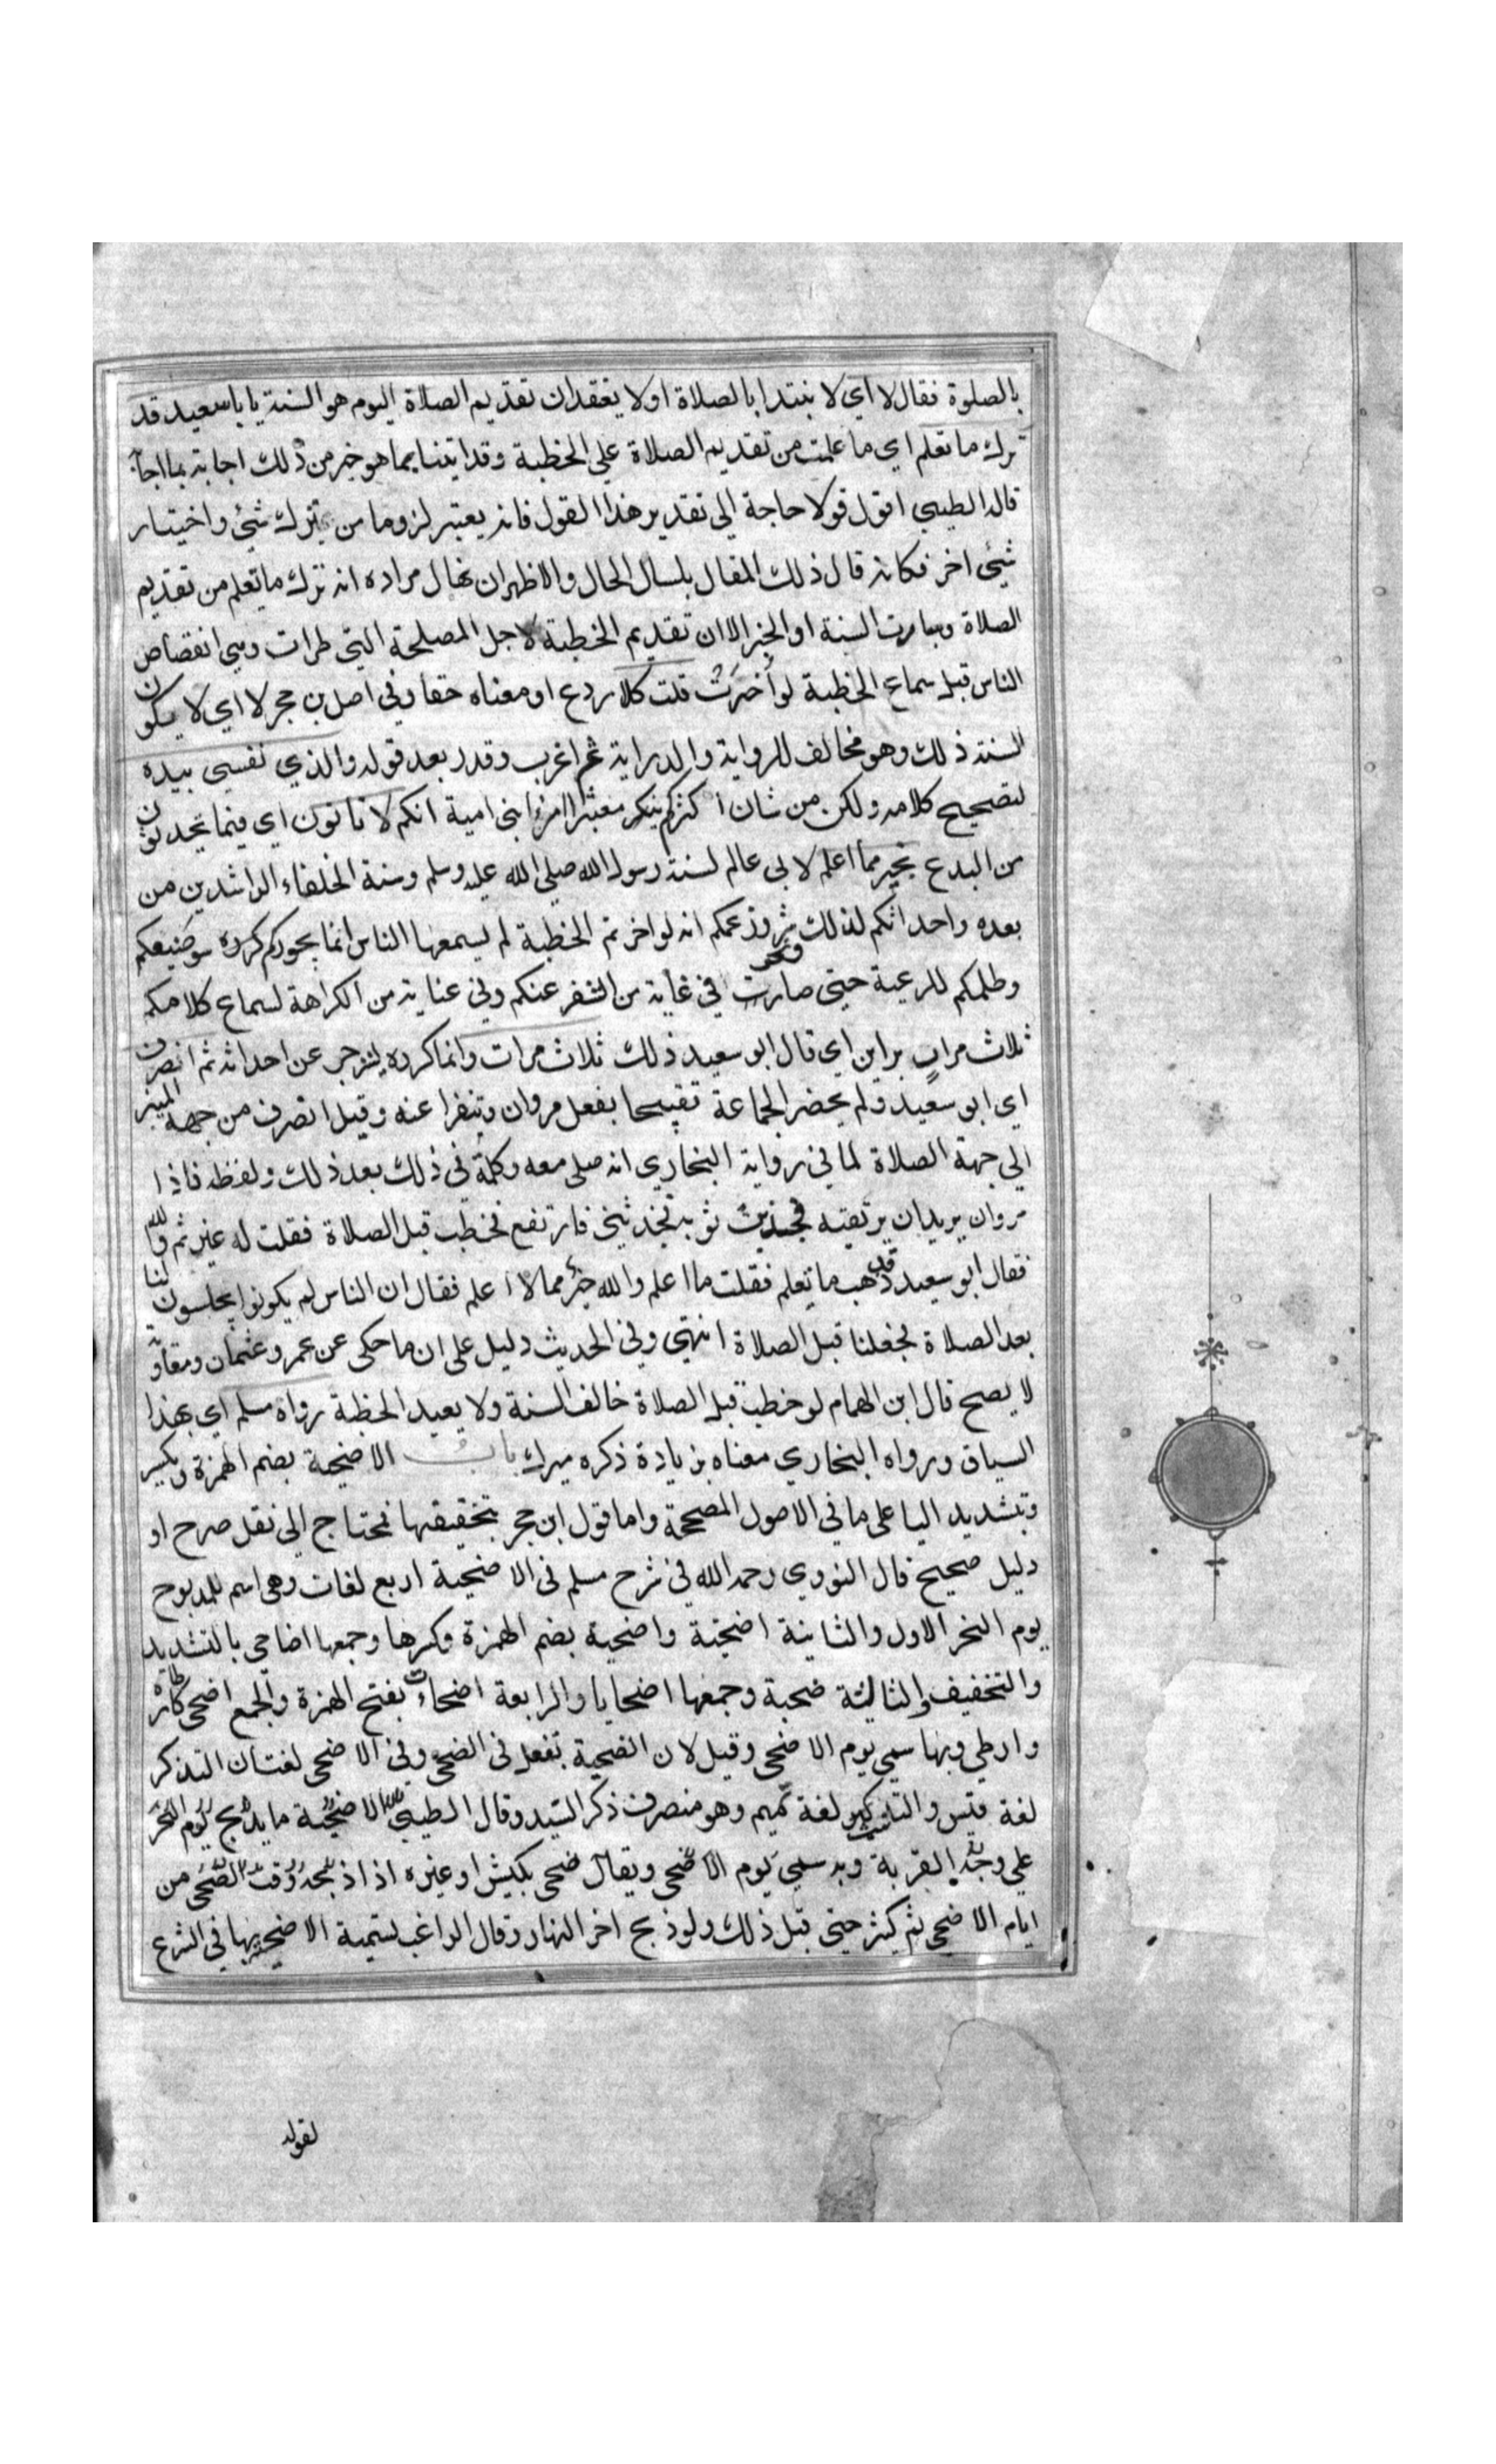 بالصلوة فقال لا اي لا نبتدا بالصلاة او لا يعتقد ان تقديم الصلاة اليوم هو السنة يا با سعيد قد
ترك ما تعلم اي ما علمت من تقديم الصلاة علي الخطبة وقد اتينا بما هو خير من ذلك اجابة بما اجآ
قاله الطيبي اقول قولا حاجة الي تقدير هذا القول فانه يعتبر لزوما من ترك شئ واختيار
شئ اخر فكانه قال ذلك المقال بلسان الحال والاظهر ان يقال مراده انه ترك ما تعلم من تقديم
الصلاة وصارت السنة او الخير الان تقديم الخطبة لاجل المصلحة التي طرات وهي انفضاض
الناس قبل سماع الخطبة لو أخرت قلت كلا ردع او معناه حقا وفي اصل بن حجر لا اي لا يكون
السنة ذلك وهو مخالف للرواية والدراية ثم اغرب وقدر بعد قوله والذي نفسي بيده
لتصحيح كلامه ولكن من شان اكثركم بنكر معشر امراء بني امية انكم لا تاتون اي فيما تحدثون
من البدع بخير مما اعلم لاني عالم لسنة رسول الله صلي الله عليه وسلم وسنة الخلفاء الراشدين من
بعده واحداثكم لذلك شر وزعمكم انه لو اخرتم الخطبة لم يسمعها الناس انما بجوركم كرده سو صنيعكم
وظلمكم للرعية حتى صارت في غاية من التنفر عنكم وفي عناية من الكراهة لسماع كلامكم
ثلاث مرارٍ براين اي قال ابو سعيد ذلك ثلاث مرات وانما كرده لينزجر عن احداثه ثم انصرف
اي ابو سعيد ولم يحضر الجماعة تقبيحا بفعل مروان وتنفرا عنه وقيل انصرف من جهة المنبر
الي جهة الصلاة لما في رواية البخاري انه صلى معه وكلمة في ذلك بعد ذلك ولفظه فاذا
مروان يريد ان يرتقيه فجذبت ثوبه فجذبني فارتفع فخطب قبل الصلاة فقلت له غيرتم والله
فقال ابو سعيد قد ذهب ما تعلم فقلت ما اعلم والله خير مما لا اعلم فقال ان الناس لم يكونوا يجلسون لنا
بعد الصلاة فجعلنا قبل الصلاة انتهي وفي الحديث دليل على ان ما حكى عن عمر وعثمان ومعاوية
لا يصح قال ابن الهمام لو خطب قبل الصلاة خالف السنة ولا يعيد الخطبة رواه مسلم اي بهذا
السياق ورواه البخاري معناه بزيادة ذكره ميرك باب الاضحية بضم الهمزة ويكسر
وتبشديد اليا على ما في الاصول المصححة واما قول ابن حجر بتخفيفها فمحتاج الي نقل صرح او
دليل صحيح قال النووي رحمه الله في شرح مسلم في الاضحية اربع لغات وهي اسم للمذبوح
يوم النحر الاول والثانية اضحية واضحية بضم الهمزة وكسرها وجمعها اضاحي بالتشديد
والتخفيف والثالثة ضحية وجمعها اضحايا والرابعة اضحاة بفتح الهمزة والجمع اضحى كارطاة
وارطي وبها سمي يوم الاضحى وقيل لان الضحية تفعل في الضحى وفي الاضحى لغتان التذكر
لغة قيس والتانيث لغة تميم وهو منصرف ذكر السيد وقال الطيبي الاضحية ما يذبح يوم النحر
علي وجه القربة وبه سمي يوم الاضحى ويقال ضحى بكبش او غيره اذ اذبحه وقت الضحى من
ايام الاضحى ثم كثر حتى قبل ذلك ولو ذبح اخر النهار وقال الراغب تسمية الاضحية بها في الشرع
لقوله